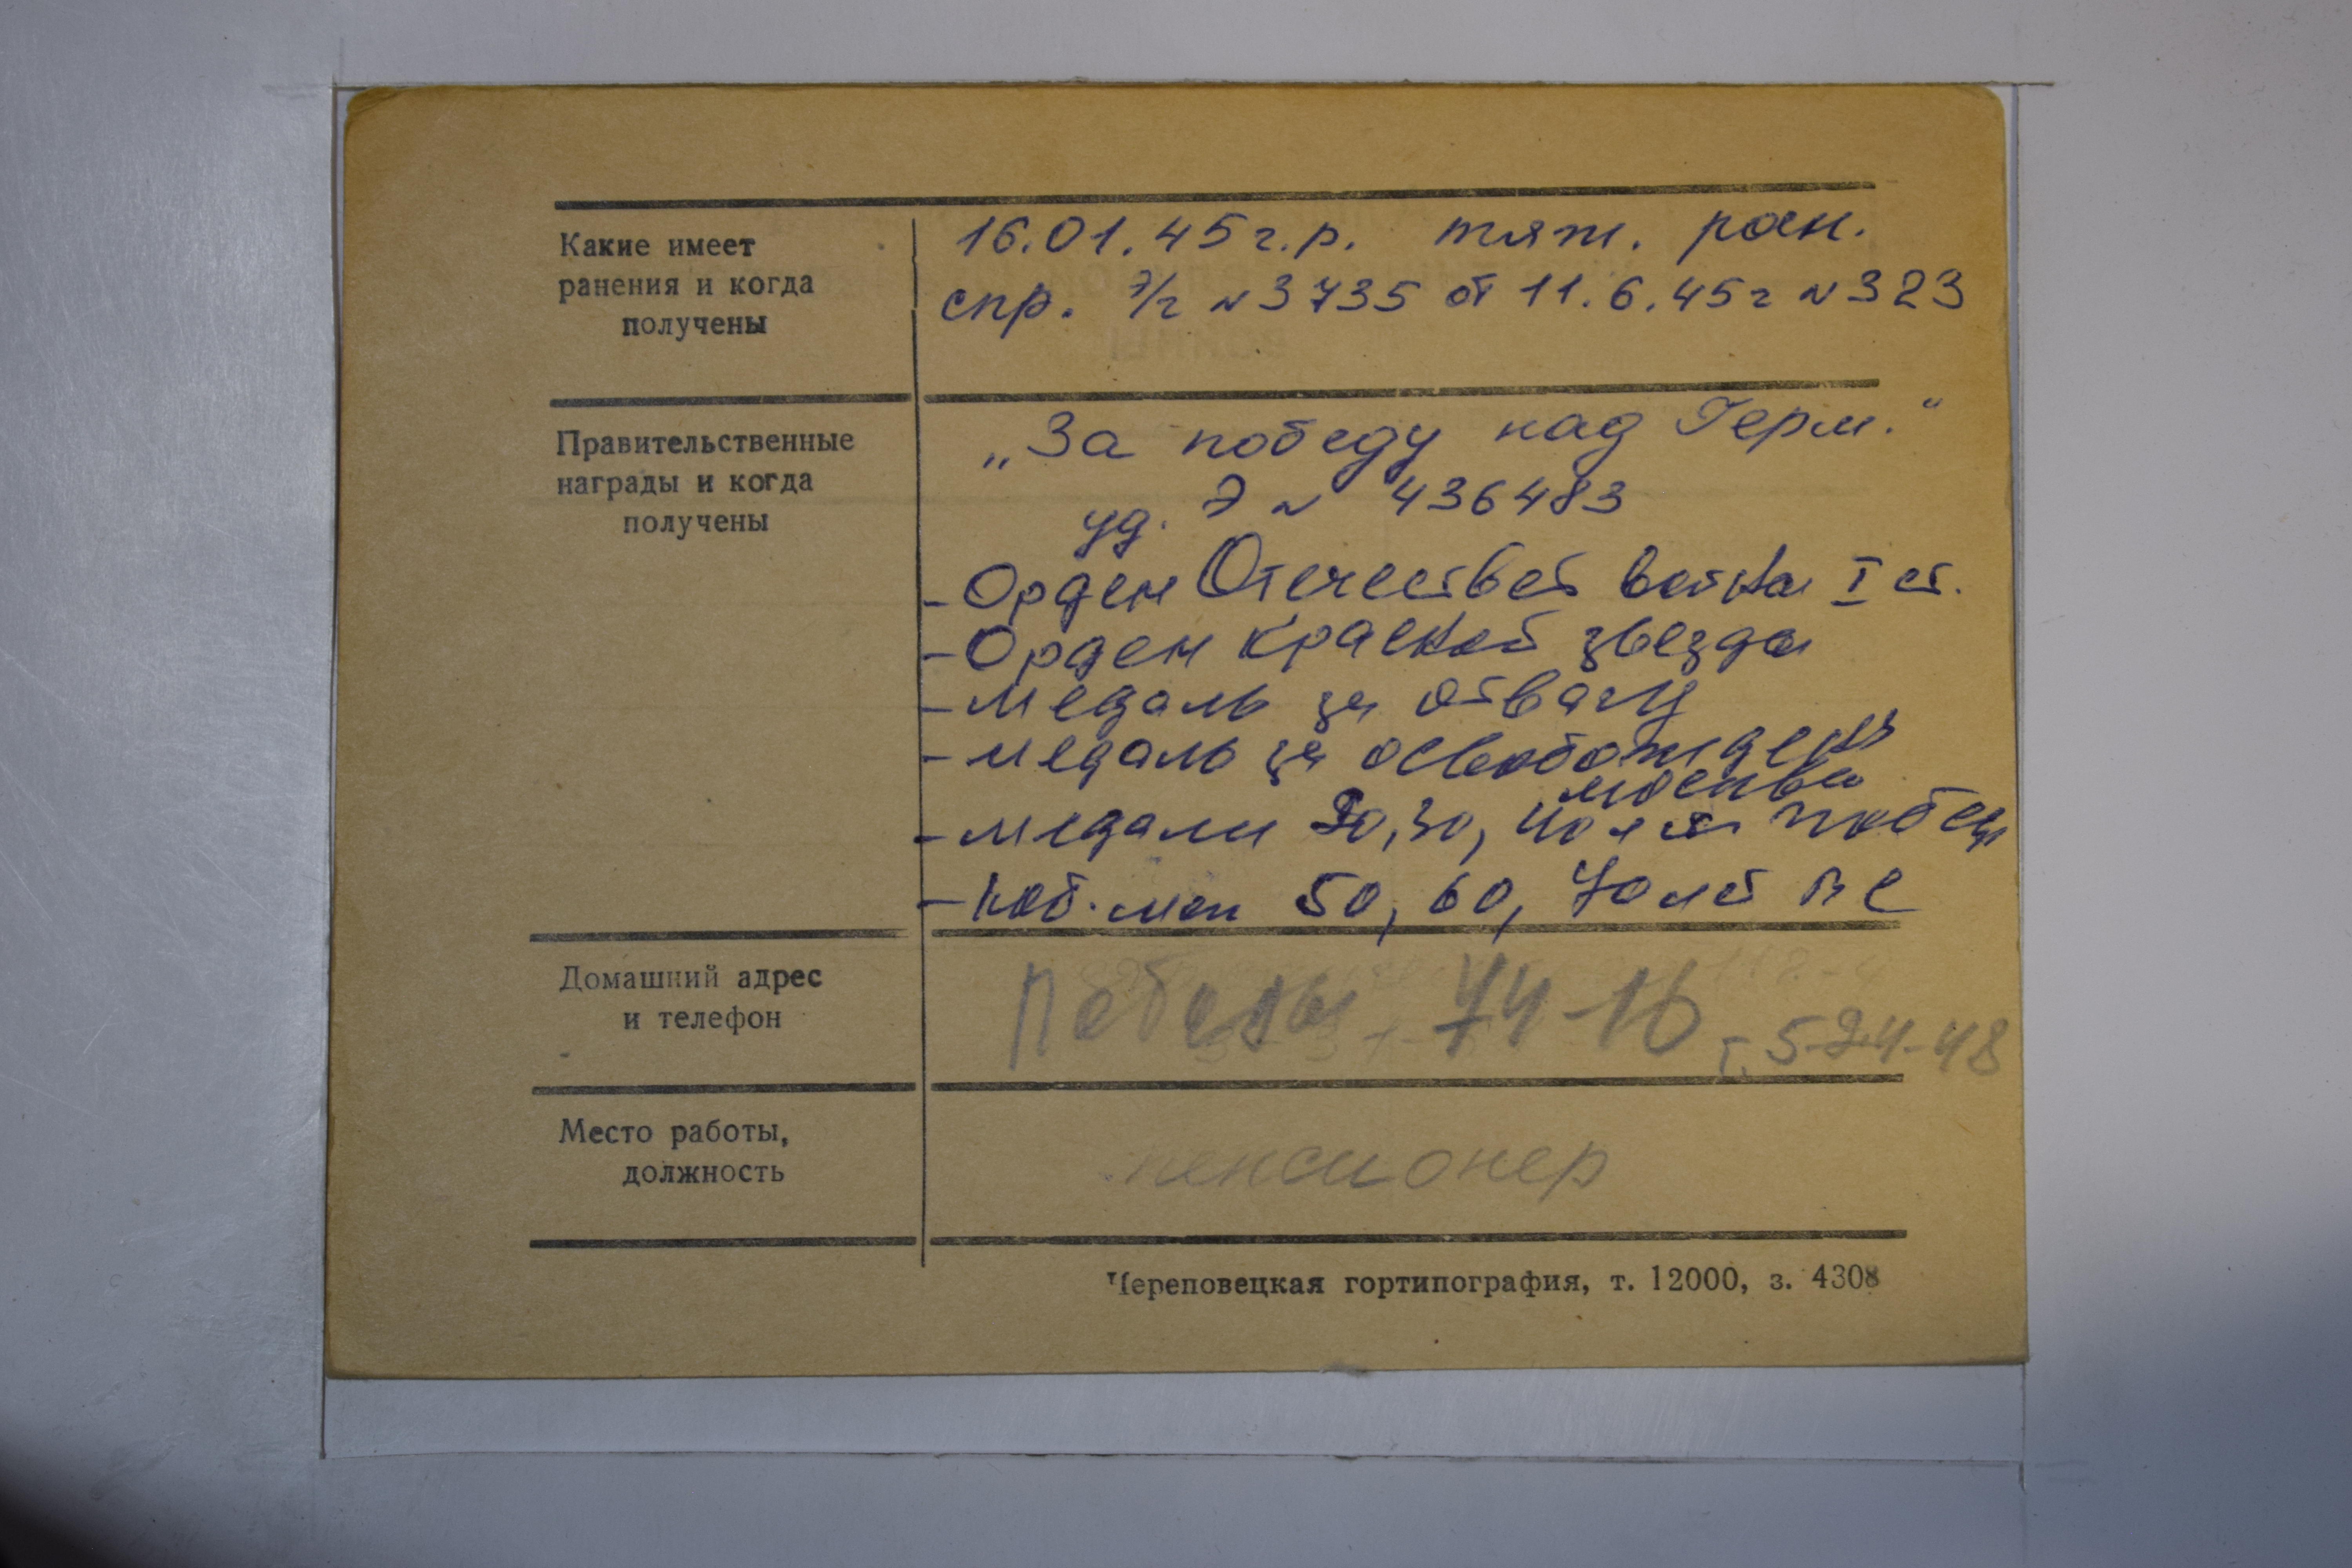 Какие имеет
ранения и когда
получены
16.01.45 г.р. тяж. ран.
спр. э/г №3735 от 11.6.45г №323
Правительственные
награды и когда
получены
„За победу над Герм."
уд. Э № 436483
- Орден Отечествен войны I ст.
- Орден Красной звезды
- медаль за отвагу
- медаль за освобожден
москвы
- медали 20, 30, 40 лет победы
- юб. мед 50, 60, 70 лет ВС
Домашний адрес
и телефон
Победы 74-16 т. 5-24-48
Место работы,
должность
пенсионер
Череповецкая гортипография, т. 12000, з. 4308